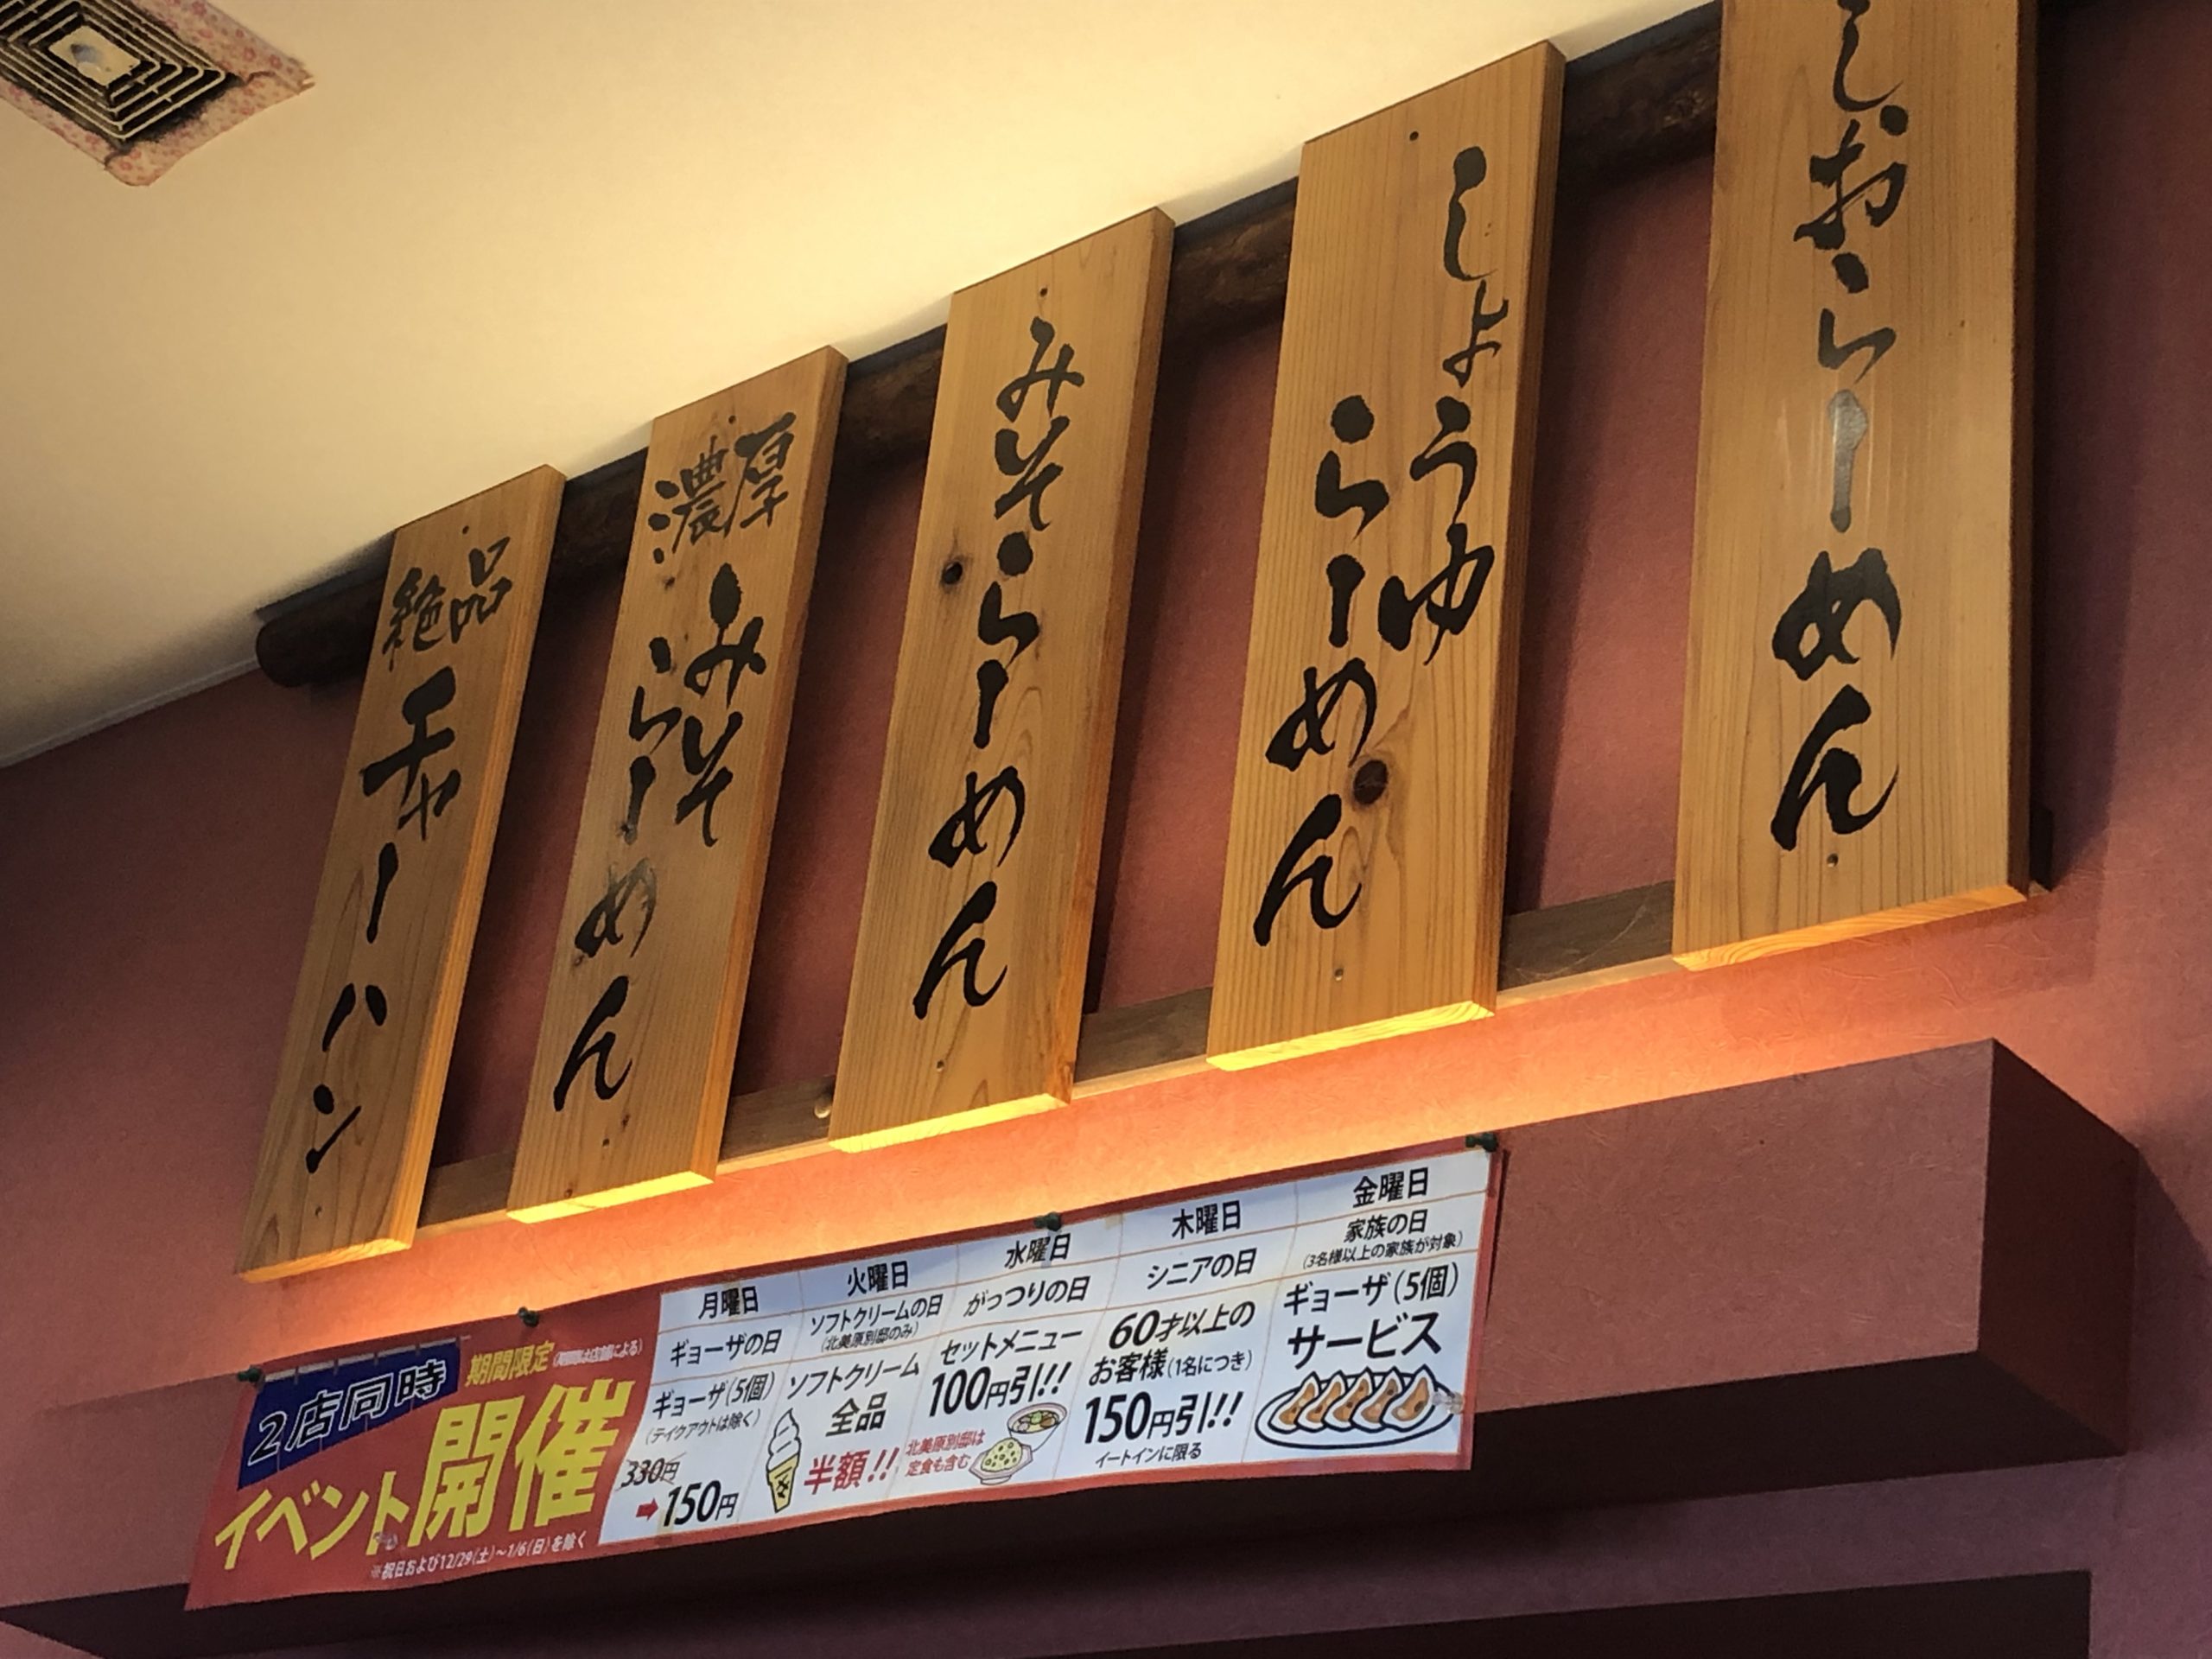 しおらーめん
しょうゆ
らーめん
みそらーめん
濃厚
みそ
らーめん
絶品
チャーハン
2店同時
期間限定(期間は店舗による)
イベント開催
※祝日および12/29(土)～1/6(日)を除く
月曜日
ギョーザの日
ギョーザ(5個)
(テイクアウトは除く)
330円
➡150円
火曜日
ソフトクリームの日
(北美原別邸のみ)
ソフトクリーム
全品
半額!!
水曜日
がっつりの日
セットメニュー
100円引!!
北美原別邸は
定食も含む
木曜日
シニアの日
60才以上の
お客様(1名につき)
150円引!!
イートインに限る
金曜日
家族の日
(3名様以上の家族が対象)
ギョーザ(5個)
サービス